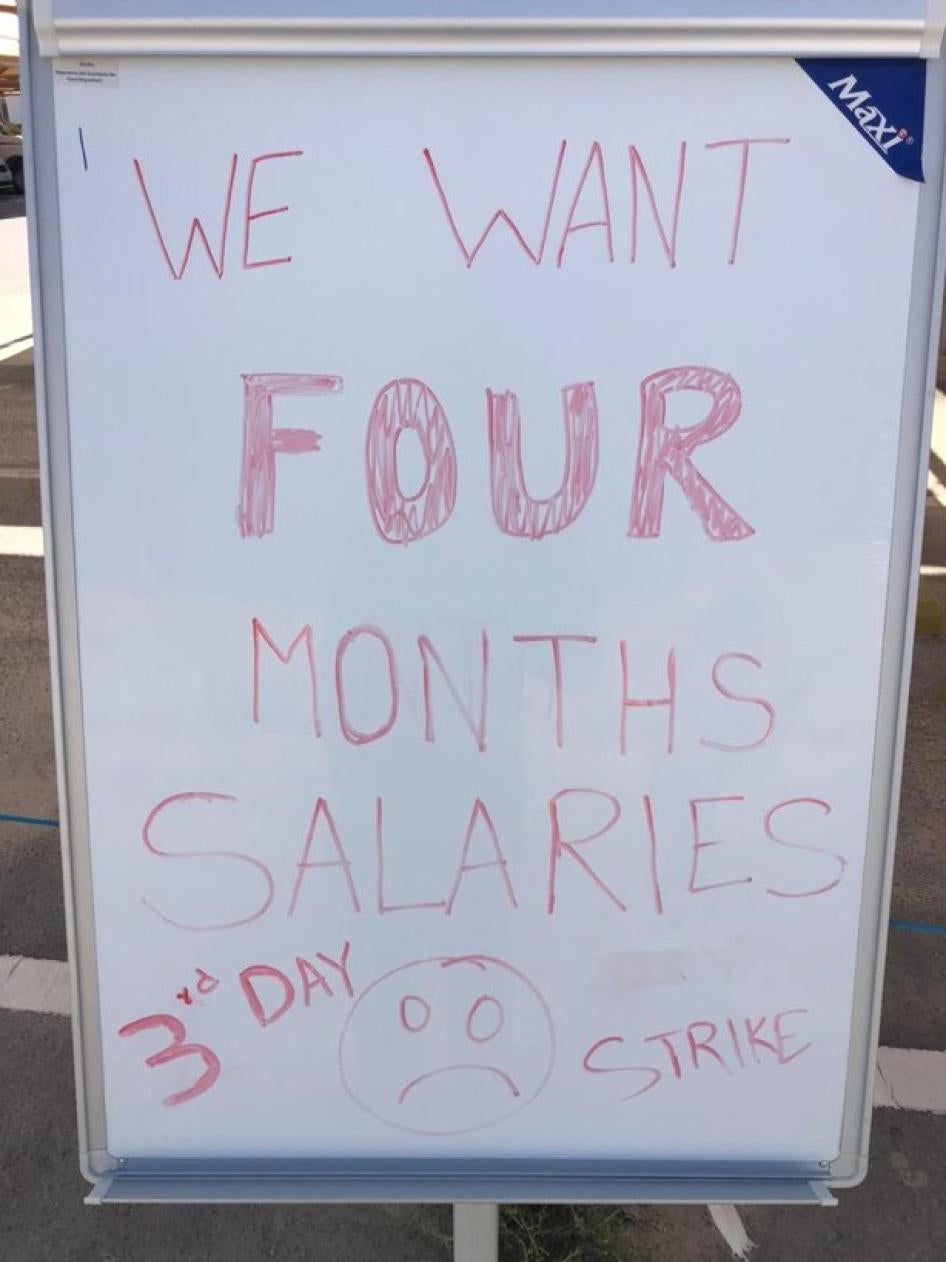 Maxi
WE WANT
FOUR
MONTHS
SALARIES
3rd DAY
STRIKE